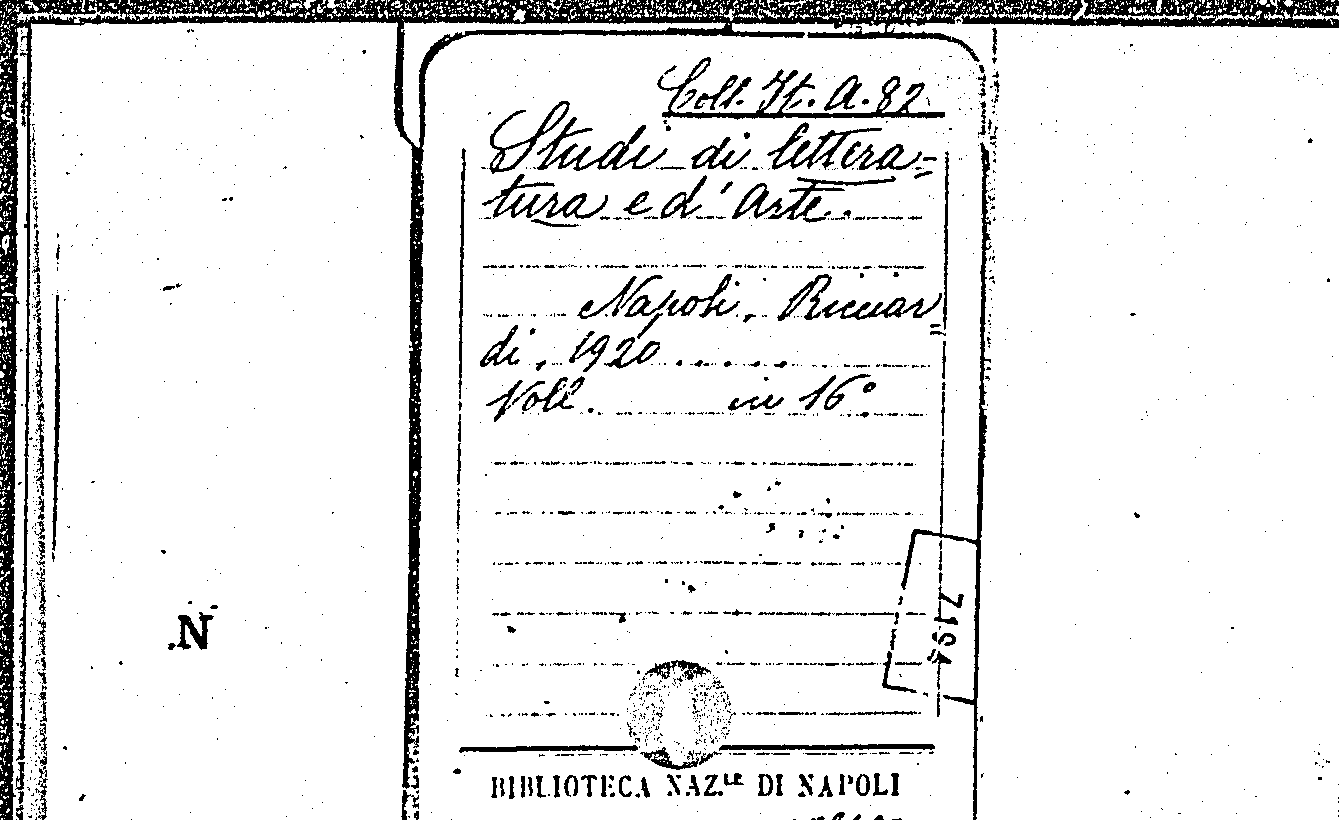 Coll. It. A. 82
Studi di lettera=
tura e d'Arte.
Napoli, Ricciar=
di, 1920.....
Voll. in 16°
7194
.N
BIBLIOTECA NAZ.LE DI NAPOLI